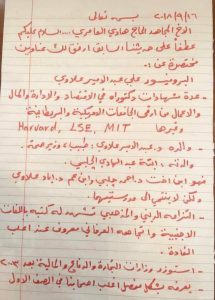 ٢٠١٨/٩/١٦ بسمه تعالى
الاخ المجاهد الحاج هادي العامري ... السلام عليكم
عطفاً على حديثنا السابق ارفق لك عناوين
مختصرة عن:-
البروفسور علي عبد الأمير علاوي
- عدة شهادات دكتوراه في الاقتصاد والادارة والمال
والاعمال من ارقى الجامعات الامريكية والبريطانية
وغيرها Harvard, LSE, MIT
- والده د. عبد الأمير علاوي: طبيب، وزير صحة.
والدته: ابنة عبد الهادي الجلبي
فهو ابن اخت د. احمد جلبي وابن عم د. اياد علاوي
ولكن لا ينتمي الى مدرستيهما.
- التزامه الديني والمذهبي تشهد له كتبه باللغات
الاجنبية واتجاهه العرفاني معروف عند اغلب
القادة.
- استوزر وزارات التجارة والدفاع والمالية بعد ٢٠٠٣
يعرفه بشكل مفصل اغلب اخواننا في الصف الاول